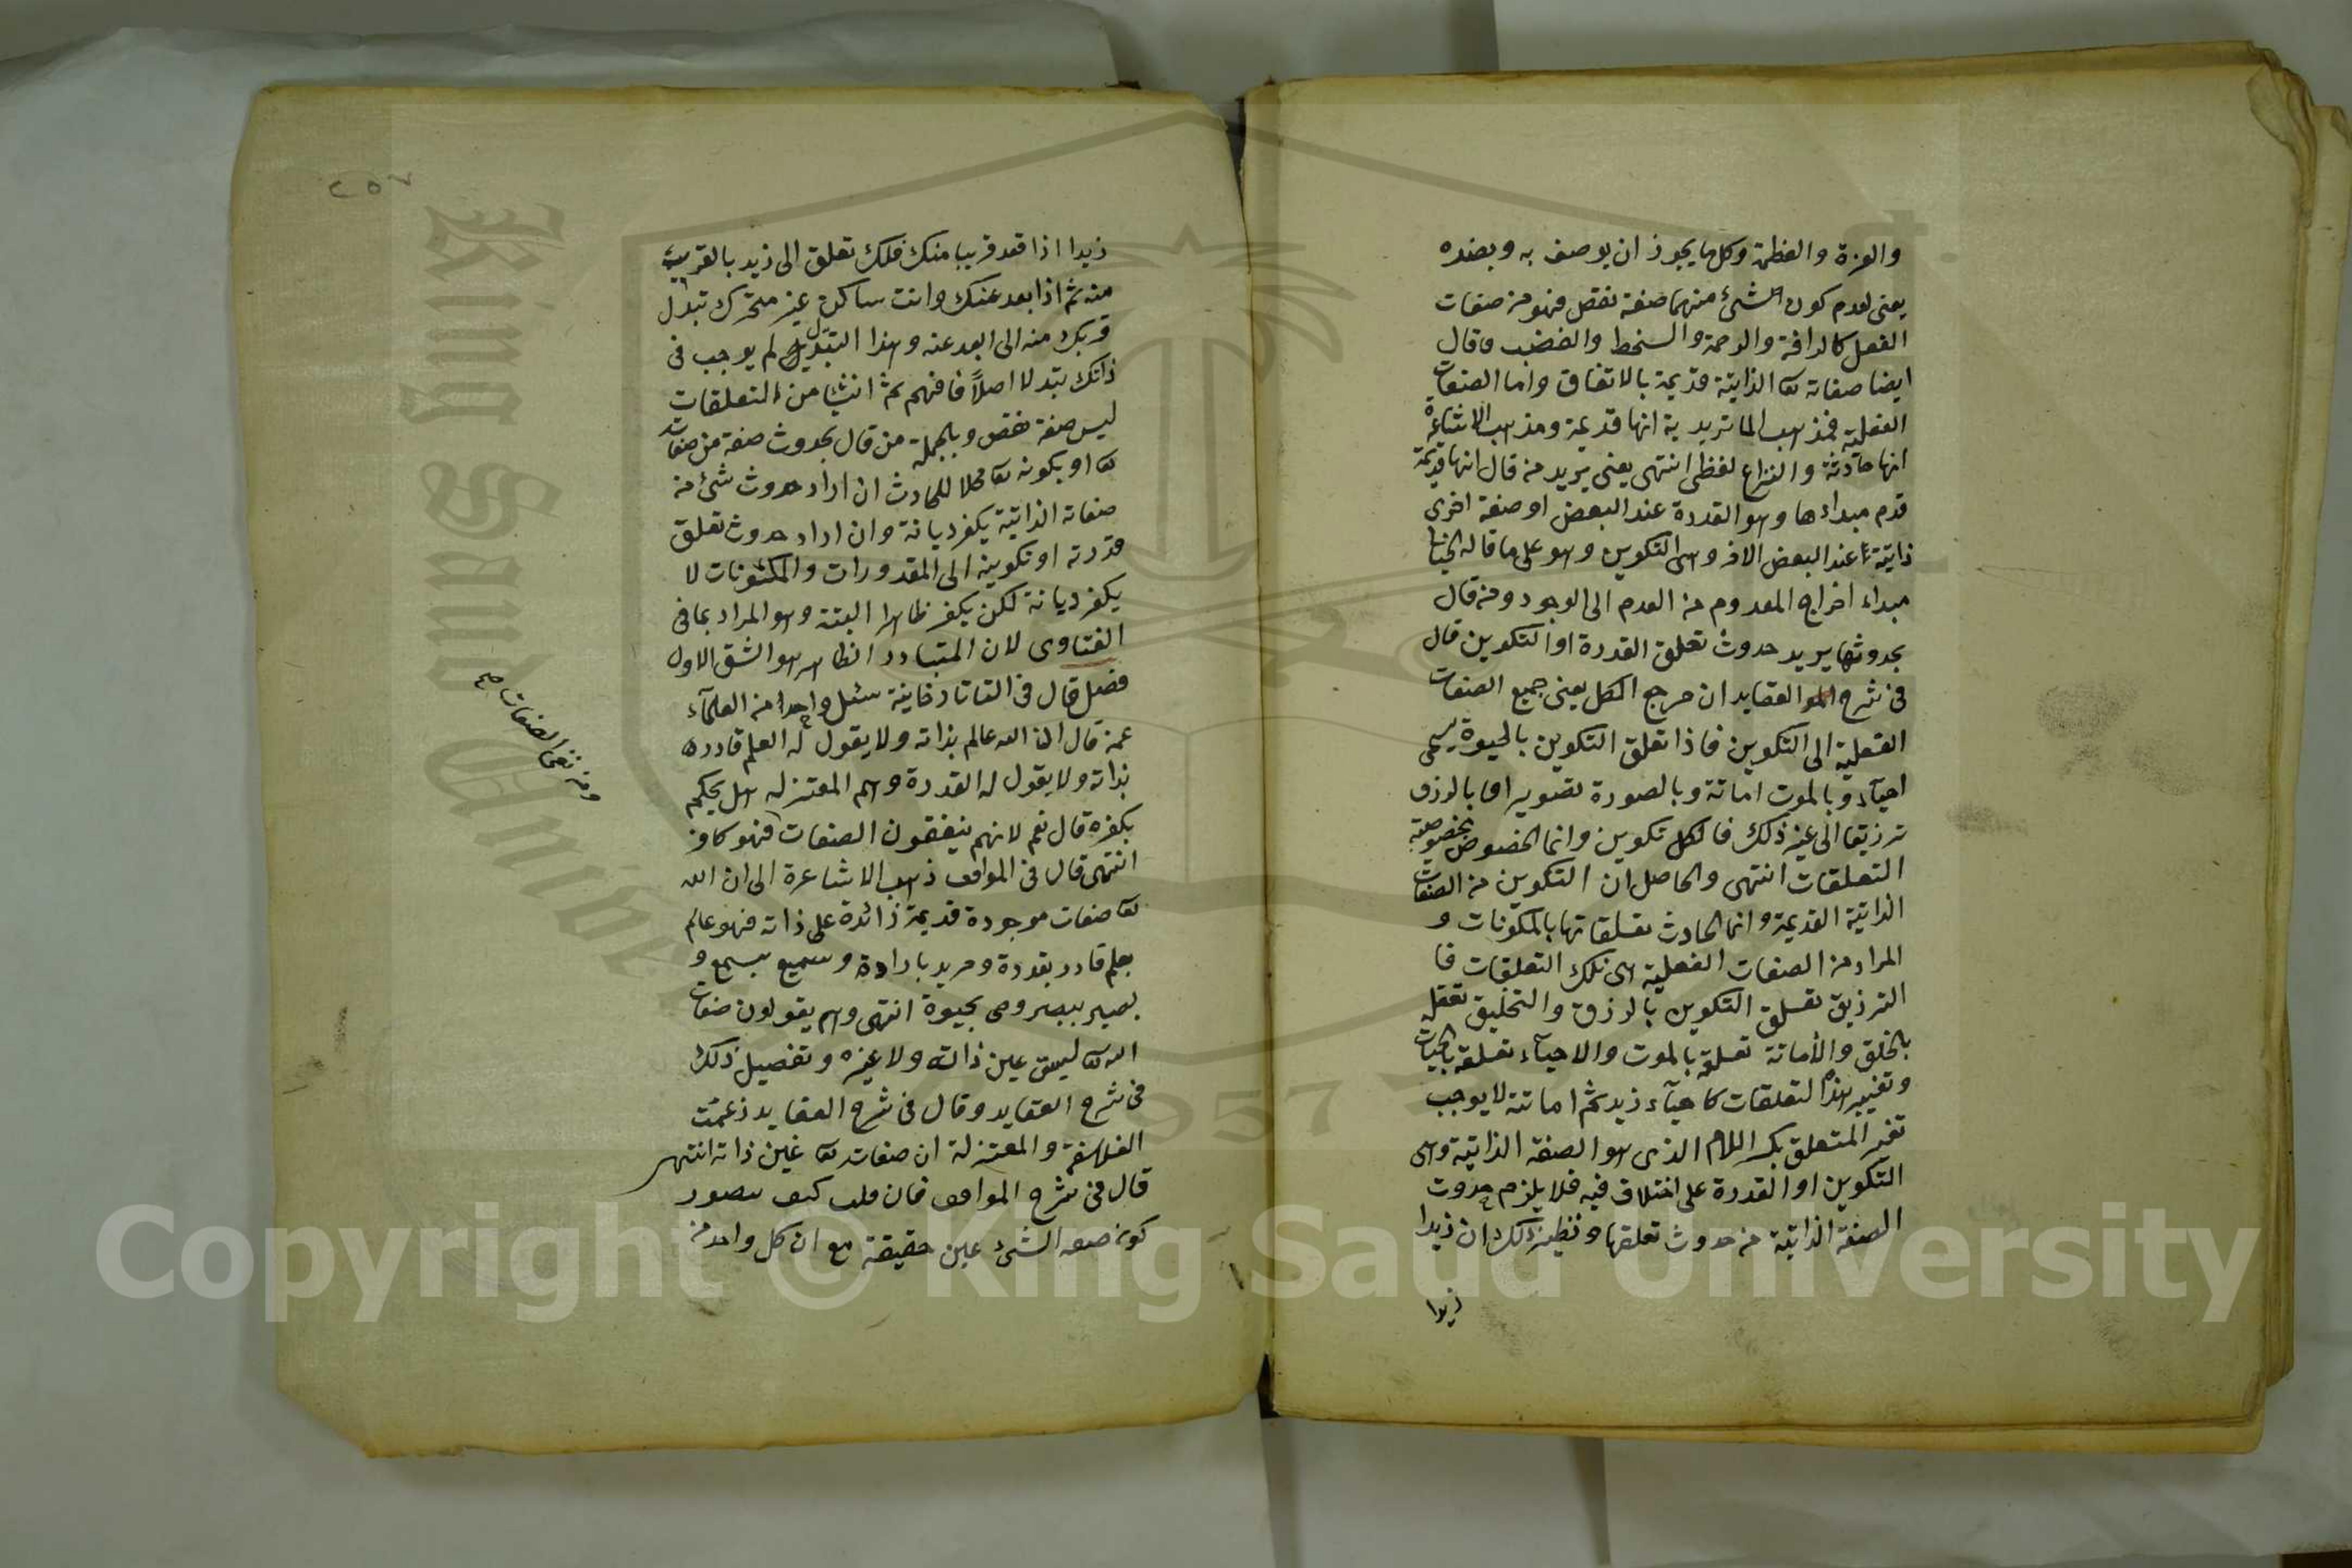 والعزة والعظمة وكل ما يجوز ان يوصف به وبضده
يعنى لعدم كون الشئ منهما صفة نقص فهو من صفات
الفعل كالرافة والرحمة والسخط والغضب وقال
ايضا صفاته تعا الذاتية قديمة بالاتفاق واما الصفات
الفعلية فمذهب الماتريدية انها قديمة ومذهب الاشاعرة
انها حادثة والنزاع لفظى انتهى يعنى يريد من قال انها قديمة
قدم مبداءها وهو القدرة عند البعض او صفة اخرى
ذاتية عند البعض الاخر وهى التكوين وهو على ما قاله
مبداء اخراج المعدوم من العدم الى الوجود ومن قال
بحدوثها يريد حدوث تعلق القدرة او التكوين قال
فى شرح العقايد ان مرجع الكل يعنى جميع الصفات
الفعلية الى التكوين فاذا تعلق التكوين بالحيوة يسمى
احياء وبالموت اماتة وبالصورة تصويرا وبالرزق
ترزيقا الى غير ذلك فالكل تكوين وانما الخصوص بخصوصية
التعلقات انتهى والحاصل ان التكوين من الصفات
الذاتية القديمة وانما الحادث تعلقاتها بالمكونات و
المراد من الصفات الفعلية هى تلك التعلقات فا
الترزيق تعلق التكوين بالرزق والتخليق تعلقه
بالخلق والاماتة تعلقه بالموت والاحياء تعلقه بالحيات
وتغيير هذه التعلقات كاحياء زيد ثم اماتته لا يوجب
تغير المتعلق بكسر اللام الذى هو الصفة الذاتية وهى
التكوين او القدرة على اختلاف فيه فلا يلزم حدوث
الصفة الذاتية من حدوث تعلقها ونظير ذلك ان زيدا
زيدا
٢٥٧
زيدا اذا قعد قريبا منك فلك تعلق الى زيد بالقربية
منه ثم اذا بعد عنك وانت ساكن غير متحرك تبدل
قربك منه الى البعد عنه وهذا التبدل لم يوجب فى
ذاتك تبدلا اصلاً فافهم ثم انشا من التعلقات
ليس صفة نقص وبالجملة من قال بحدوث صفة من صفات
تعا او بكونه تعا محلا للحادث ان اراد حدوث شئ من
صفاته الذاتية يكفر ديانة وان اراد حدوث تعلق
قدرته او تكوينه الى المقدورات والمكونات لا
يكفر ديانة لكن يكفر ظاهرا البتة وهو المراد بما فى
الفتاوى لان المتبادر الظاهر هو الشق الاول
فصل قال فى التاتارخانية سئل واحدا من العلماء
عمن قال ان الله عالم بذاته ولا يقول له العلم قادر
بذاته ولا يقول له القدرة وهم المعتزله هل يحكم
بكفره قال نعم لانهم ينفقون الصفات فهو كافر
انتهى قال فى المواقف ذهب الاشاعرة الى ان الله
تعا صفات موجودة قديمة زائدة على ذاته فهو عالم
بعلم قادر بقدرة ومريد بارادة وسميع بسمع و
بصير ببصر وحى بحيوة انتهى وهم يقولون صفات
الله تعا ليست عين ذاته ولا غيره وتفصيل ذلك
فى شرح العقايد وقال فى شرح العقايد زعمت
الفلاسفة والمعتزلة ان صفات تعا عين ذاته انتهى
قال فى شرح المواقف فان قلت كيف يتصور
كون صفة الشئ عين حقيقة مع ان كل واحد من
ومن نفى الصفات
King Saud University
1957
Copyright © King Saud University